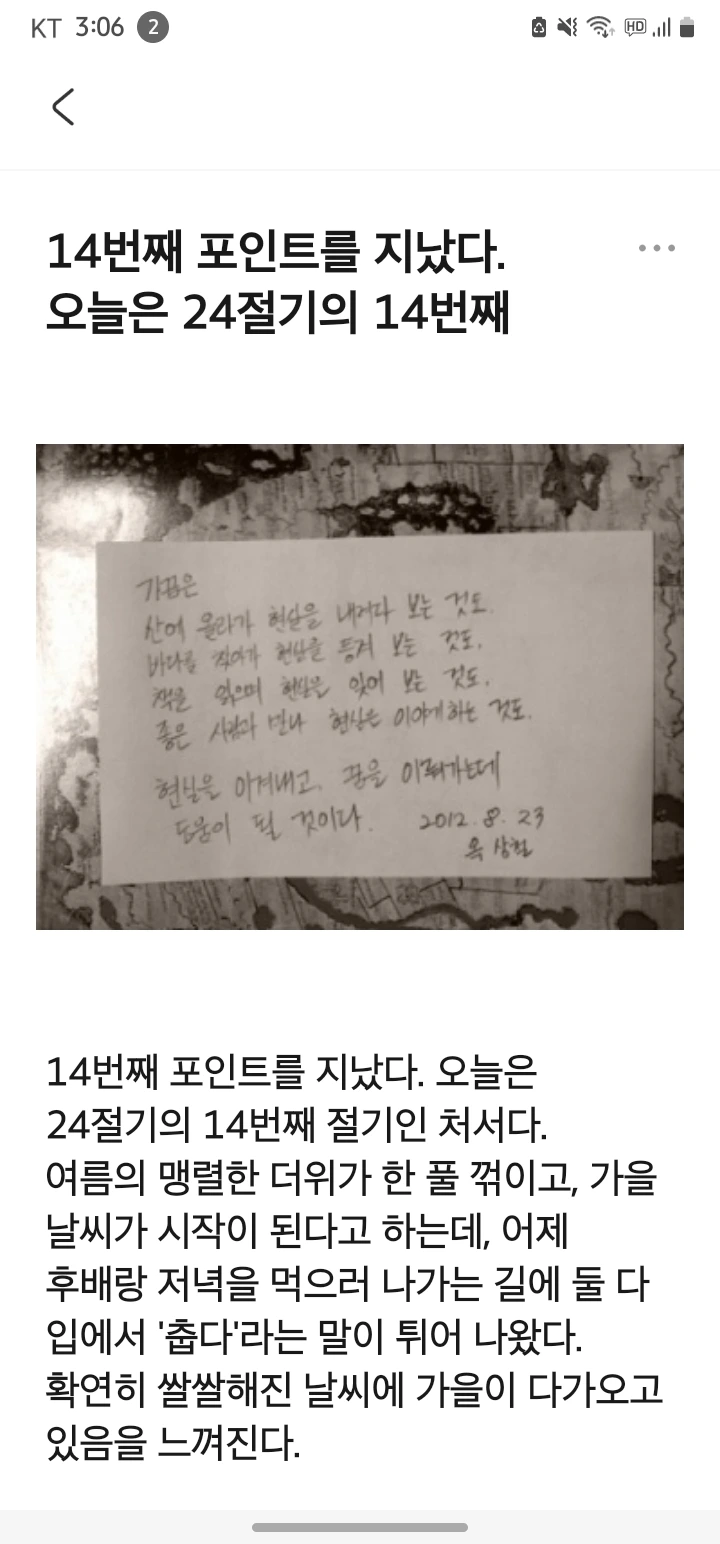 KT 3:06 2
HD
14번째 포인트를 지났다.
오늘은 24절기의 14번째
가끔은
산에 올라가 현실을 내려다 보는 것도.
바다를 찾아가 현실을 등져 보는 것도.
책을 읽으며 현실을 잊어 보는 것도.
좋은 사람과 만나 현실은 이야기하는 것도.
현실을 이겨내고, 꿈을 이뤄가는데
도움이 될 것이다. 2012. 8. 23
옥상현
14번째 포인트를 지났다. 오늘은
24절기의 14번째 절기인 처서다.
여름의 맹렬한 더위가 한 풀 꺾이고, 가을
날씨가 시작이 된다고 하는데, 어제
후배랑 저녁을 먹으러 나가는 길에 둘 다
입에서 '춥다'라는 말이 튀어 나왔다.
확연히 쌀쌀해진 날씨에 가을이 다가오고
있음을 느껴진다.